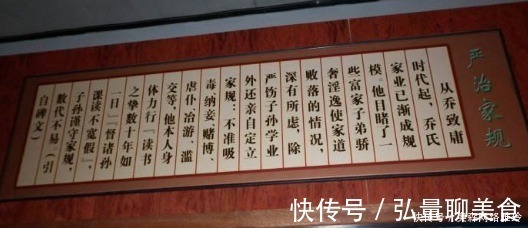 严治家规
从乔致庸
时代起，乔氏
家业已渐成规
模。他目睹了一
些富家子弟骄
奢淫逸使家道
败落的情况，
深有所虑，除
严饬子孙学业
外还亲自定立
家规，不准吸
毒纳妾、赌博、
虐仆、冶游、滥
交等，他本人身
体力行“读书
之挚数十年如
一日”“督诸孙
课读不宽假”，
子孙谨守家规，
数代不易（引
自碑文）
快传号 / 弘量聊美食